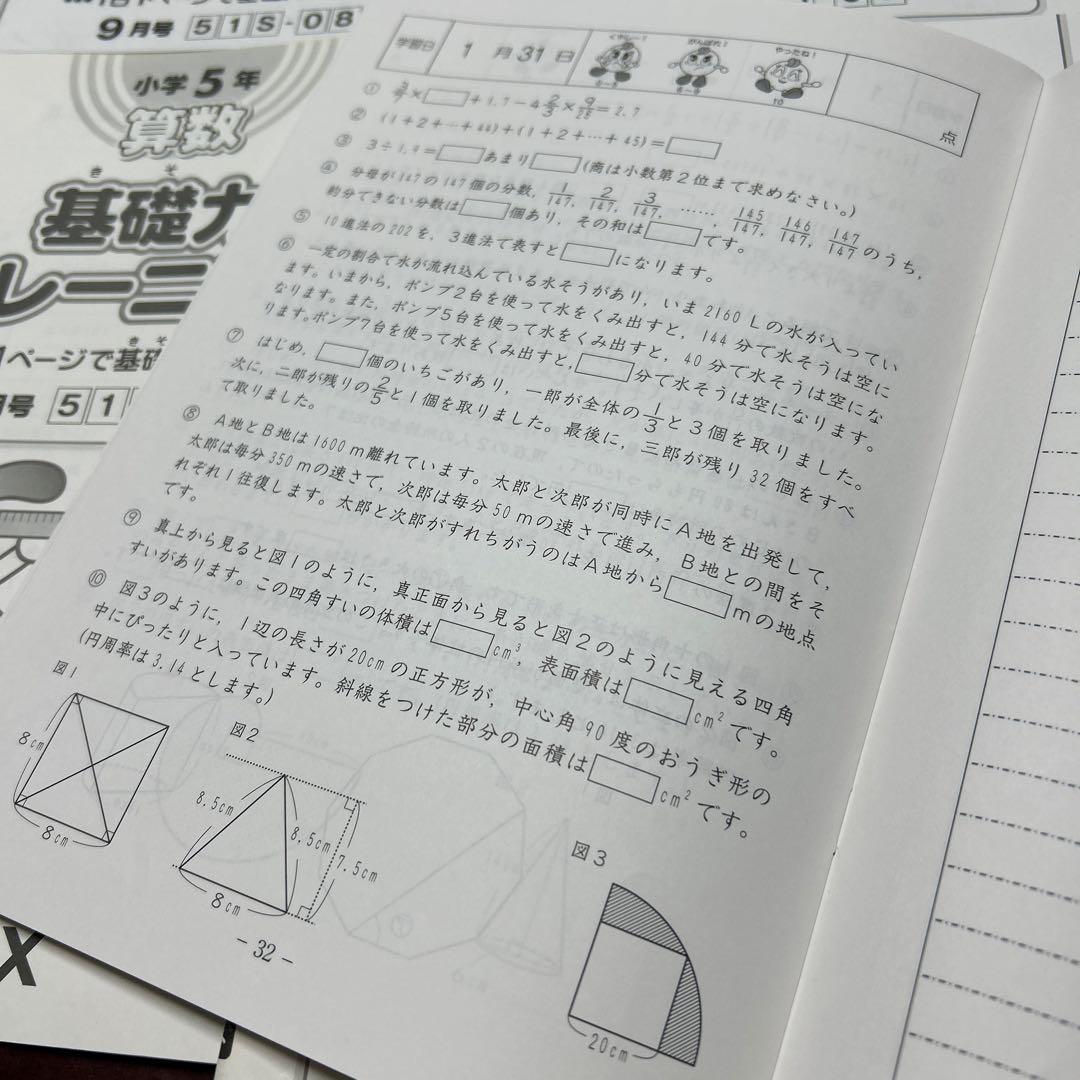 9月号 51S-08
小学5年
算数
きそ
基礎力
レーニ
1ページで基礎
月号 51
学習日
1月31日
くやしー!
がんばれ!
やったね!
10
点
② (1+2+…+44)+(1+2+…+45)=□
③ 3÷1.9=□あまり□(商は小数第2位まで求めなさい。)
④ 分母が147の147個の分数, 1/147, 2/147, 3/147, ……, 145/147, 146/147, 147/147のうち,
約分できない分数は□個あり, その和は□です。
⑤ 10進法の202を, 3進法で表すと□になります。
⑥ 一定の割合で水が流れ込んでいる水そうがあり, いま2160Lの水が入ってい
ます。いまから, ポンプ2台を使って水をくみ出すと, 144分で水そうは空に
なります。また, ポンプ5台を使って水をくみ出すと, 40分で水そうは空にな
ります。ポンプ7台を使って水をくみ出すと, □分で水そうは空になります。
⑦ はじめ, □個のいちごがあり, 一郎が全体の1/3と3個を取りました。
次に, 二郎が残りの2/5と1個を取りました。最後に, 三郎が残り32個をすべ
て取りました。
⑧ A地とB地は1600m離れています。太郎と次郎が同時にA地を出発して,
太郎は毎分350mの速さで, 次郎は毎分50mの速さで進み, B地との間をそ
れぞれ1往復します。太郎と次郎がすれちがうのはA地から□mの地点
です。
⑨ 真上から見ると図1のように, 真正面から見ると図2のように見える四角
すいがあります。この四角すいの体積は□cm³, 表面積は□cm²です。
⑩ 図3のように, 1辺の長さが20cmの正方形が, 中心角90度のおうぎ形の
中にぴったりと入っています。斜線をつけた部分の面積は□cm²です。
(円周率は3.14とします。)
図1
8cm
8cm
図2
8.5cm
8.5cm
7.5cm
8cm
図3
20cm
- 32 -